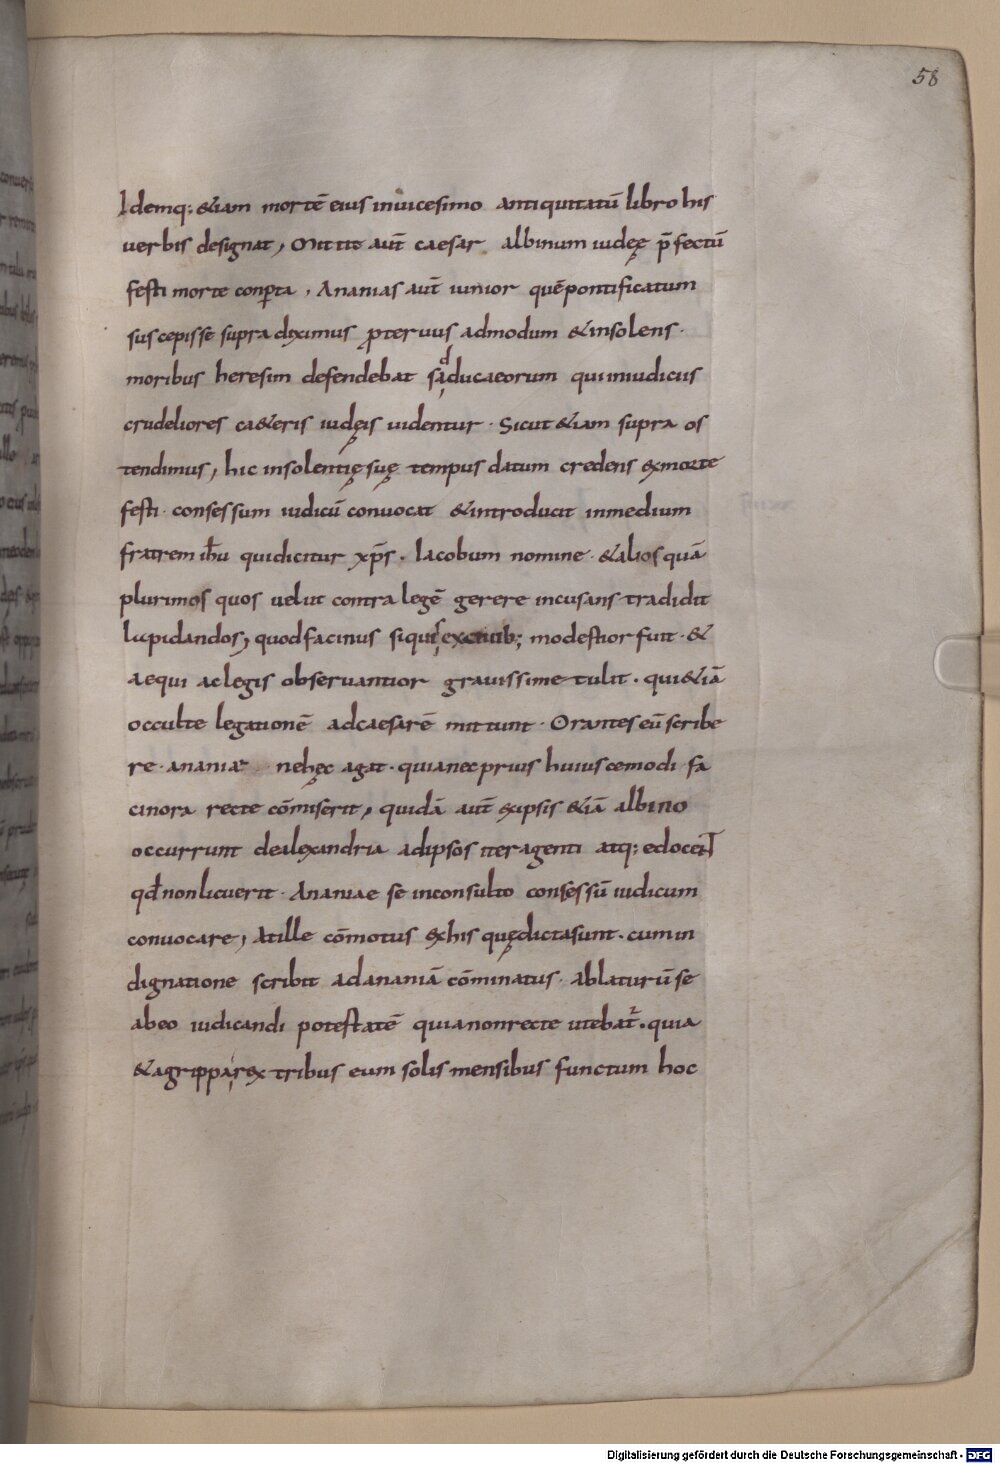 58
Idemq; &iam mortē eius inuicesimo antiquitatū libro his
uerbis designat, Mittit aut̄ caesar albinum iudęę p̄fectū
festi morte conperta, Ananias aut̄ iunior quē pontificatum
suscepisse supra diximus proteruus admodum & insolens·
moribus heresim defendebat sadducaeorum qui iniudiciis
crudeliores ca&eris iudęis uidentur· Sicut &iam supra os
tendimus, hic insolentię suę tempus datum credens exmorte
festi· consessum iudicū conuocat & introducit inmedium
fratrem ih̄u quidicitur xp̄s· Iacobum nomine· & alios quā
plurimos quos uelut contra legē gerere incusans tradidit
lapidandos, quod facinus siquis exciuib; modestior fuit· &
aequi aclegis obseruantior grauissime tulit· qui &iā
occulte legationē adcaesarē mittunt· Orantes eū scribe
re· ananiae nehęc agat· quianec prius huiuscemodi fa
cinora recte cōmiserit, quidā aut̄ exipsis &iā albino
occurrunt dealexandria adipsos iter agenti atq; edocent
qđ non licuerit· Ananiae se inconsulto consessū iudicum
conuocare, Atille cōmotus exhis quędicta sunt· cum in
dignatione scribit adananiā cōminatus· ablaturū se
abeo iudicandi potestatē quianonrecte utebat̄· quia
& agrippa rex tribus eum solis mensibus functum hoc
Digitalisierung gefördert durch die Deutsche Forschungsgemeinschaft - DFG